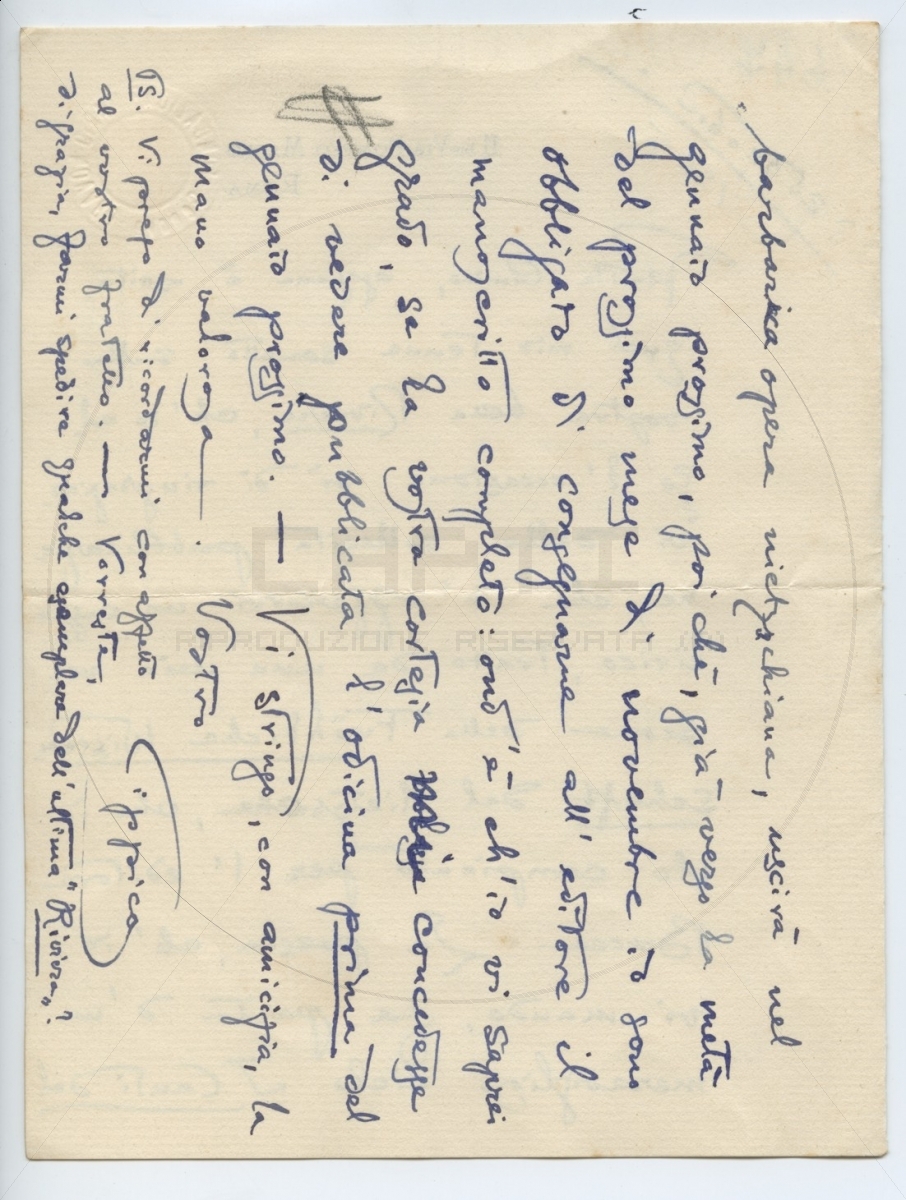 barbarica opera nietzschiana, uscirà nel
gennaio prossimo, poichè, già verso la metà
del prossimo mese di novembre io sono
obbligato di consegnarne all' editore il
manoscritto completo: ond' è ch'io vi saprei
grado, se la vostra cortesia concedesse
di vedere pubblicata l' odicina prima del
gennaio prossimo. — Vi stringo, con amicizia, la
mano valorosa — . Vostro
Cippico
PS. Vi prego di ricordarmi con affetto
al vostro fratello. — Vorreste,
di grazia, farmi spedire qualche esemplare dell'ultima "Riviera"?
CAPTI
RIPRODUZIONE RISERVATA (C)